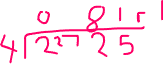 0 8 1 r 1
4 2 27 2 5